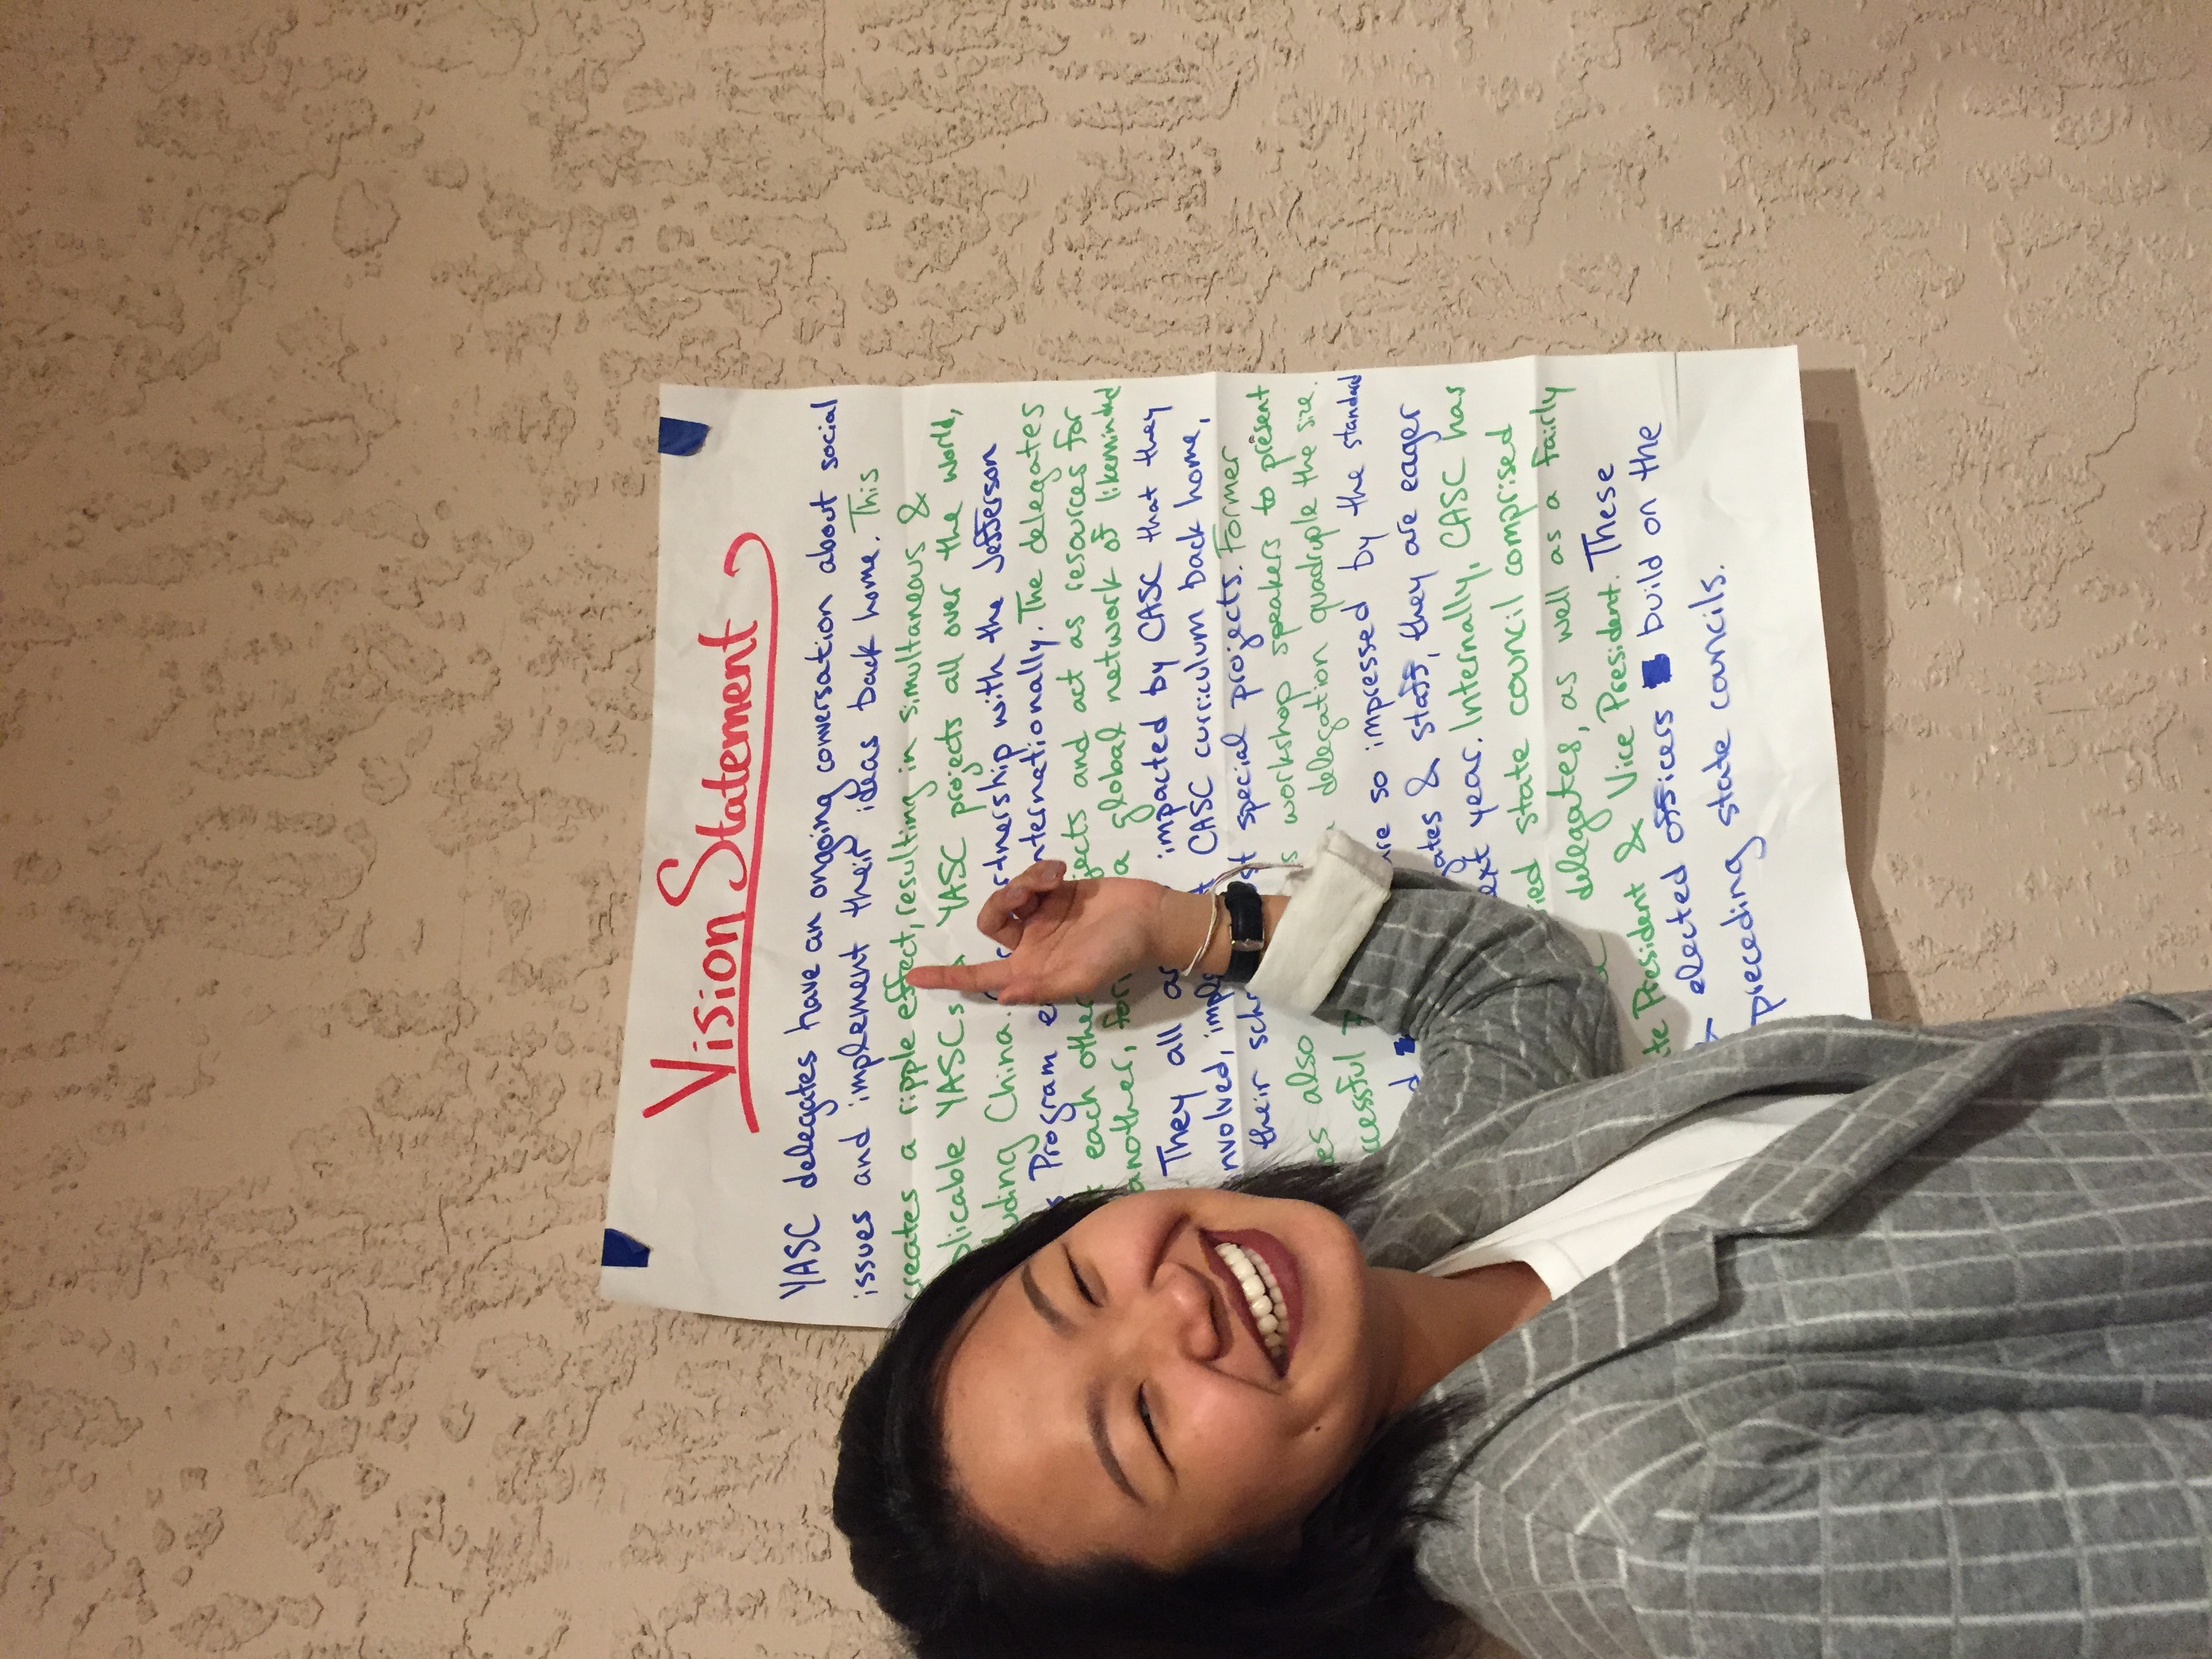 Vision Statement
YASC delegates have an ongoing conversation about social
issues and implement their ideas back home. This
creates a ripple effect, resulting in simultaneous &
plicable YASCs YASC projects all over the world,
uding China. rtnership with the Jefferson
s Program e nternationally. The delegates
t each other jects and act as resources for
another, for a global network of likeminded
They all ar impacted by CASC that they
nvolved, imple t CASC curriculum back home,
their scho st special projects. Former
es also s workshop speakers to present
ccessful delegation quadruple the size.
d are so impressed by the standard
gates & staff, they are eager
ext year. Internally, CASC has
ied state council comprised
delegates, as well as a fairly
te President & Vice President. These
& elected officers build on the
preceding state councils.